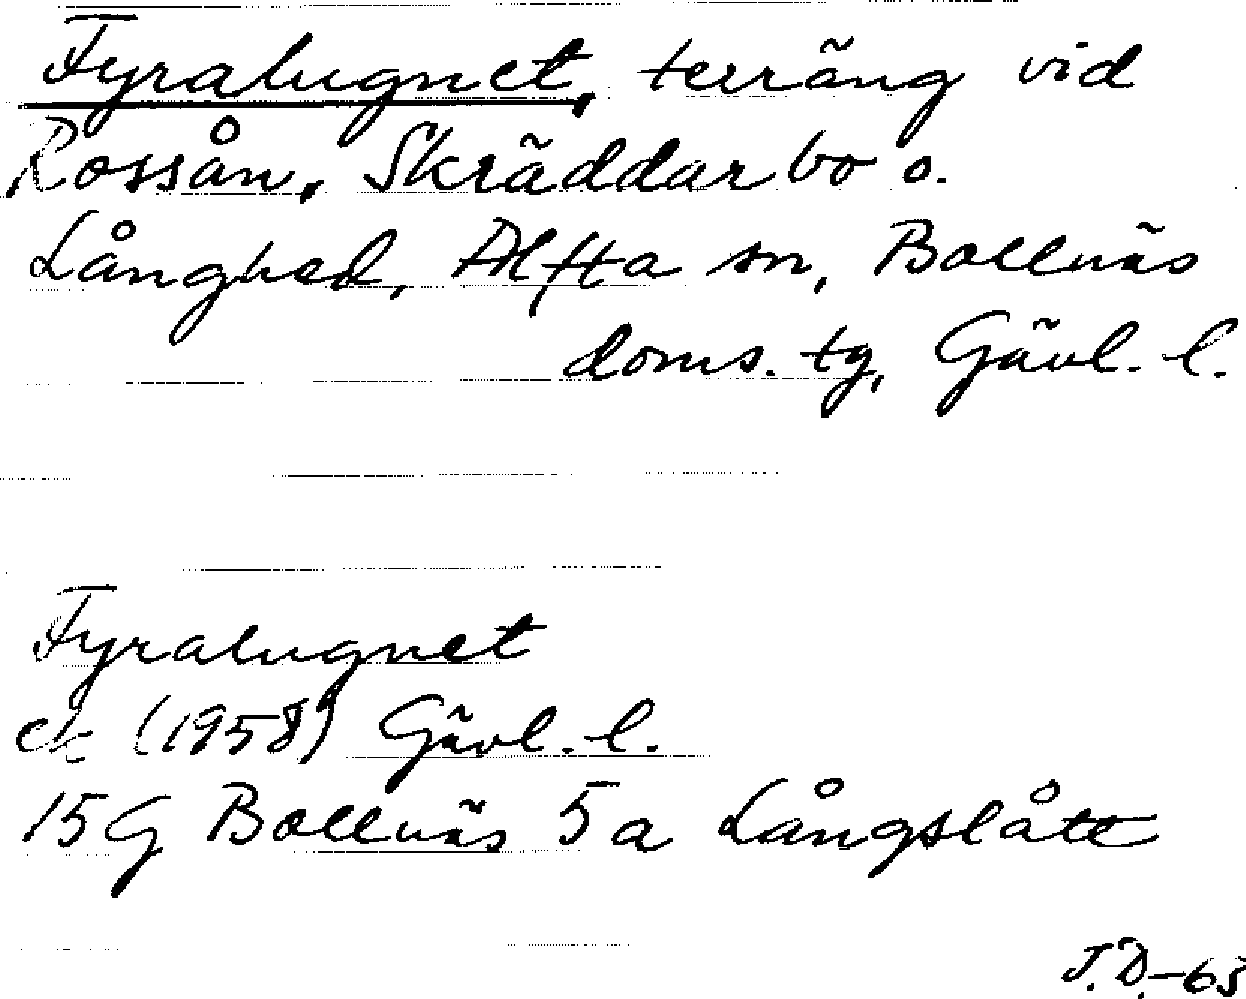 Fyralugnet, terräng vid
Rossån, Skräddarbo o.
Långhed, Alfta sn, Bollnäs
doms. tg, Gävl. l.
Fyralugnet
ek (1958) Gävl. l.
15G Bollnäs 5a Långslått
J.D.-65